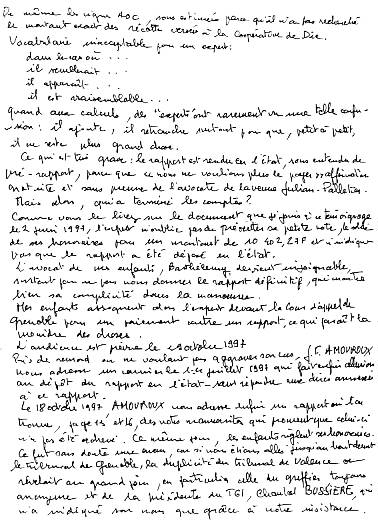 De même les vignes AOC, sous estimées parce qu'il n'a pas recherché
le montant exact des récoltes versées à la Coopérative de Die.
Vocabulaire inacceptable pour un expert:
dans le cas où ...
il semblerait ...
il apparaît ...
il est vraisemblable ...
Quand aux calculs, des "experts" ont rarement vu une telle confu-
sion: il ajoute, il retranche surtout pour que, petit à petit,
il ne reste plus grand chose.
Ce qui est très grave: le rapport est rendu en l'état, sous entendu de
pré-rapport, parce que ce nous ne voulions plus de pages
gratuite et sans preuve de l'avocate de la veuve Julian-
Mais alors, qui a terminé les comptes?
Comme vous le lirez sur le document que je joins à ce témoignage
le 2 juin 1997, l'expert n'oublie pas de présenter sa petite note, le solde
de ses honoraires pour un montant de 10 402,27F et n'indique
pas que le rapport a été déposé en l'état.
L'avocat de mes enfants, Barthélemy, devient injoignable,
surtout pour ne pas nous donner le rapport définitif, qui montre
bien sa complicité dans la manoeuvre.
Mes enfants assignent alors l'expert devant la Cour d'appel de
Grenoble pour un paiement contre un rapport, ce qui paraît la
moindre des choses.
L'audience est prévue le 29 octobre 1997
Pris de remord ou ne voulant pas aggraver son cas, J.F. AMOUROUX
nous adresse un courrier le 1er juillet 1997 qui fait enfin allusion
au dépôt du rapport en l'état - sans répondre aux dires annexés
à ce rapport.
Le 18 octobre 1997 AMOUROUX nous adresse enfin un rapport où l'on
trouve, page 15 et 16, des notes manuscrites qui prouvent que celui-ci
n'a pas été achevé. Ce même jour, les enfants règlent ses honoraires.
Ce fut sans doute une erreur, car si nous étions allés jusqu'au bout devant
le tribunal de Grenoble, la duplicité du tribunal de Valence se
révélait au grand jour, en particulier celle du greffier toujours
anonyme et de la présidente du TGI, Chantal BOSSIÈRE, qui
n'a indiqué son nom que grâce à notre insistance.